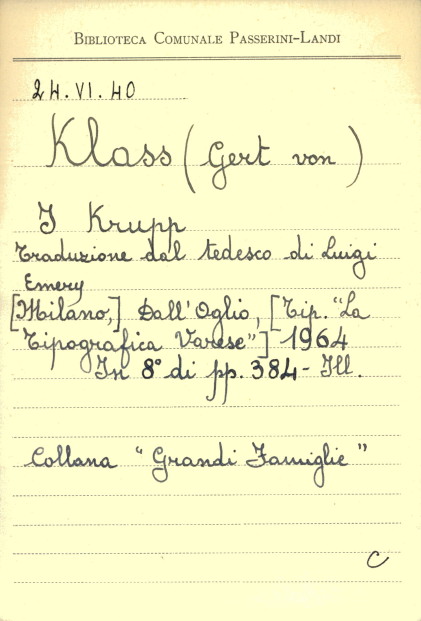 BIBLIOTECA COMUNALE PASSERINI-LANDI
24.VI.40
Klass (Gert von)
I Krupp
Traduzione dal tedesco di Luigi
Emery
[Milano,] Dall'Oglio, [Tip. "La
Tipografica Varese"] 1964
In 8° di pp. 384 - Ill.
Collana "Grandi Famiglie"
C